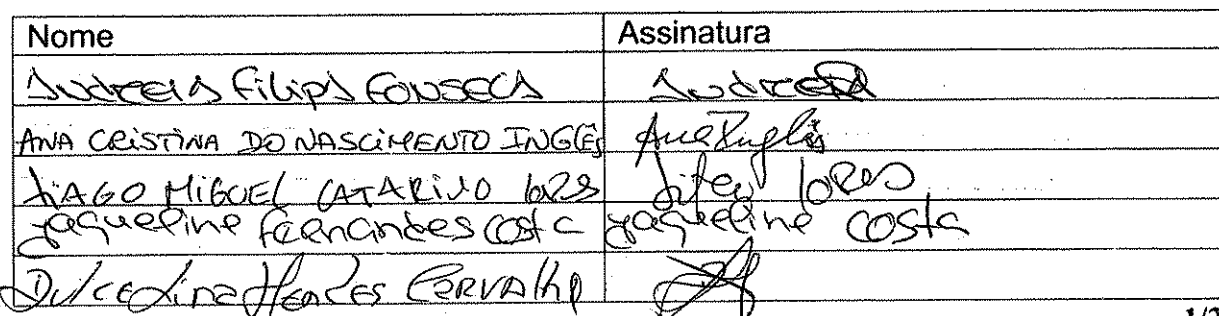 Nome Assinatura
Andreia Filipa Fonseca Andreia
ANA CRISTINA DO NASCIMENTO INGLÊS Ana Inglês
TIAGO MIGUEL CATARINO
Jaqueline Fernandes Costa Jaqueline Costa
Dulcelina Carvalho